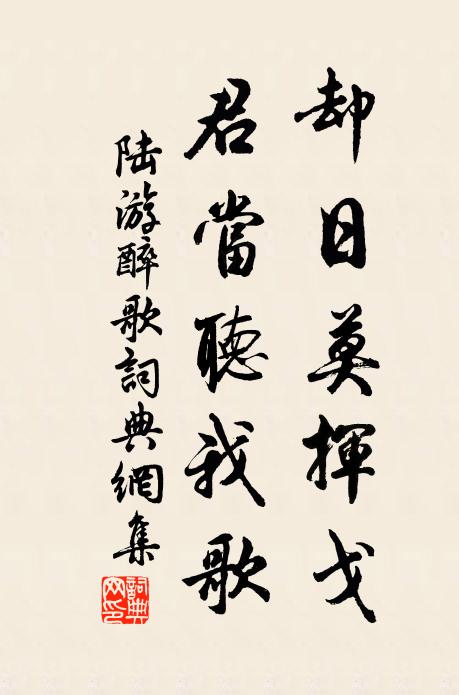 却日莫揮戈
君當聽我歌
陸游醉歌詞典網集
詞典
网印